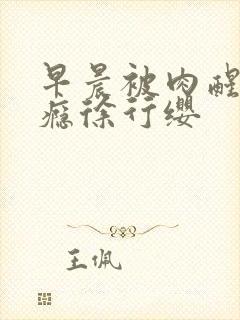 早晨被肉醒
瘾徐行缨
王佩